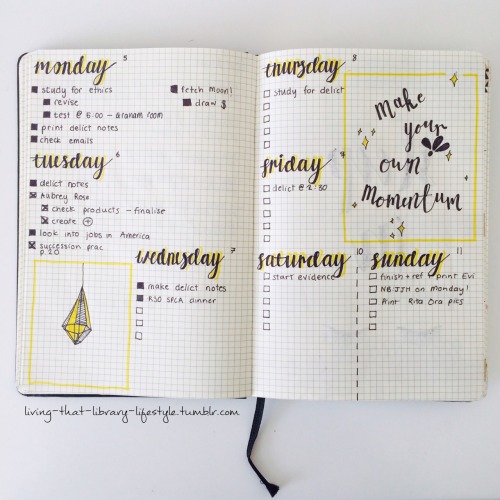 monday 5
study for ethics
revise
test @ 5:00 - Graham room
print delict notes
check emails
fetch Moon!
draw $
tuesday 6
delict notes
Aubrey Rose
check products - finalise
create
look into jobs in America
succession prac
p. 20
wednesday 7
make delict notes
R50 SPCA dinner
thursday 8
study for delict
friday 9
delict @ 2:30
Make
your
own
Momentum
saturday 10
start evidence
sunday 11
finish + ref print Evi
NB JJH on Monday!
Print Rita Ora pics
living-that-library-lifestyle.tumblr.com